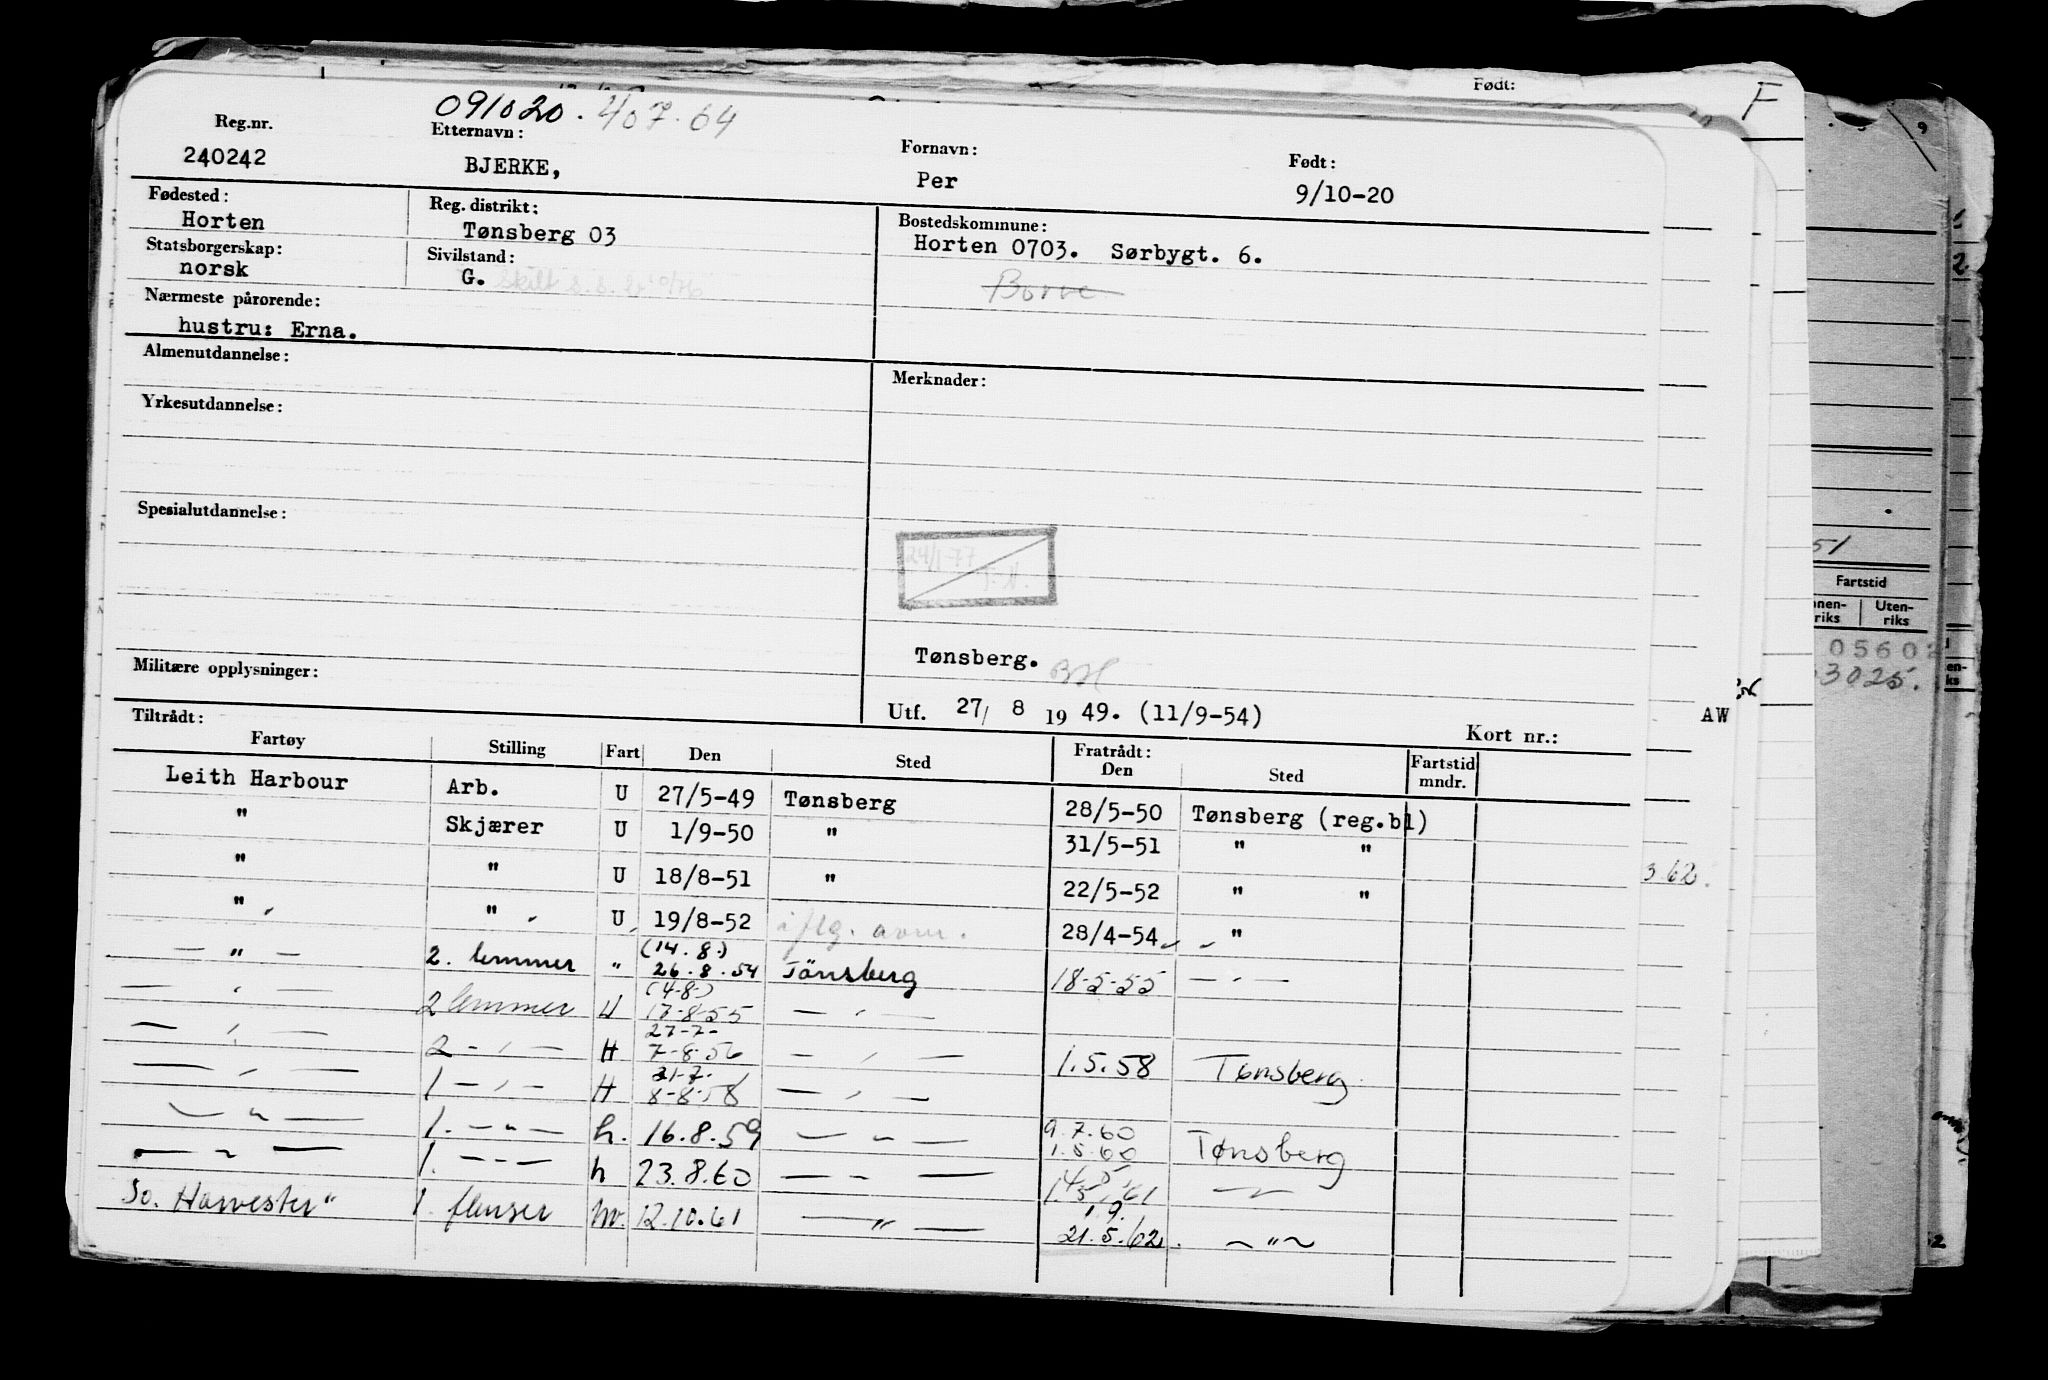 Født:
F
091020. 407.64
Reg.nr. Etternavn: Fornavn: Født:
240242 BJERKE, Per 9/10-20
Fødested: Reg. distrikt: Bostedskommune:
Horten Tønsberg 03 Horten 0703. Sørbygt. 6.
Statsborgerskap: Sivilstand:
norsk G. Borre
Nærmeste pårørende:
hustru: Erna.
Almenutdannelse: Merknader:
Yrkesutdannelse:
Spesialutdannelse:
24/1-77
51
Fartstid
Uten-
riks riks
05602
3025.
Tønsberg.
Militære opplysninger:
Utf. 27/ 8 19 49. (11/9-54) AW
Tiltrådt: Kort nr.:
Fartøy Stilling Fart Den Sted Fratrådt: Den Sted Fartstid mndr.
Leith Harbour Arb. U 27/5-49 Tønsberg 28/5-50 Tønsberg (reg.bl)
" Skjærer U 1/9-50 " 31/5-51 " "
" " U 18/8-51 " 22/5-52 " "
" " U 19/8-52 iflg. avm. 28/4-54 "
— " — 2. lemmer " (14.8.) 26.8.54 Tönsberg 18-5-55 — " —
— " — 2 lemmer U (4-8-) 17-8-55 — " —
— " — 2 — " — H 27-7- 7-8-56 — " — 1.5.58 Tønsberg
— " — 1 — " — H 31-7- 8-8-58 — " —
— " — 1. — " — h. 16.8.59 — " — 9.7.60 1.5.60 Tønsberg
— " — 1. — " — h 23.8.60 — " — 14.5. 61 — " —
So. Harvester" 1. flenser hv. 12.10.61 — " — 1.9. 21.5.62. — " —
362.